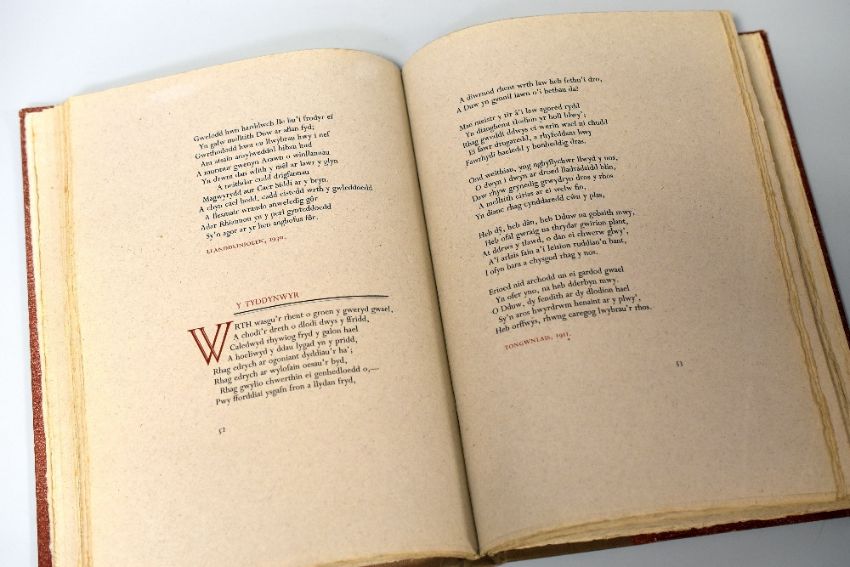 Gwelodd hwn harddwch lle bu'i frodyr ef
Yn galw melltith Duw ar aflan fyd;
Gwrthododd hwn eu llwybrau hwy i nef
Am atsain anwylweddol bibau hud
A murmur gwenyn Arawn o winllannau
Yn drwm dan wlith y mêl ar lawr y glyn
A neithdar cudd drigfannau
Magwyrydd aur Caer Siddi ar y bryn.
A chyn cael bedd, cadd eistedd wrth y gwleddoedd
A llestair wrando anweledig gôr
Adar Rhiannon yn y perl gynteddoedd
Sy'n agor ar yr hen anghofus fôr.
LLANDRINIOLEN, 1930.
Y TYDDYNWYR
WRTH wasgu'r rhent o groen y gweryd gwael,
A chodi'r dreth o dlodi dwys y ffridd,
Caledwyd rhywiog fryd y galon hael
A hoeliwyd y ddau lygad yn y pridd,
Rhag edrych ar ogoniant dyddiau'r ha';
Rhag edrych ar wylofain oesau'r byd,
Rhag gwylio chwerthin ei genhedloedd o,—
Pwy fforddiai ysgafn fron a llydan fryd,
52
A diwrnod rhent wrth law heb fethu'i dro,
A Duw yn gennil iawn o'i bethau da?
Mae meistr y tir â'i law agored rydd
Yn dianghenu tlodion yr holl blwy';
Rhag gweiddi ddwys ei werin wael ni chudd
Ei fawr drugaredd, a rhyfeddant hwy
Fawrhydi bachedd y bonheddig dras.
Ond weithiau, yng nghyflychwr llwyd y nos,
O dwyn i dwyn ar droed lladradaidd blin,
Daw rhyw grynedig grwydryn dros y rhos
A melltith cariar ar ei welw fin,
Yn dianc rhag cynddaredd cŵn y plas,
Heb dŷ, heb dân, heb Dduw na gobaith mwy,
Heb ofal gwraig na thrydar gwirion plant,
At ddrws y tlawd, o dan ei chwerw glwy',
A'i arlais fain a'i leision ruddiau'n bant,
I ofyn bara a chysgod rhag y nos.
Erioed nid archodd un ei gardod gwael
Yn ofer yno, na heb dderbyn mwy.
O Dduw, dy fendith ar dy dlodion hael
Sy'n aros hwyrdrwm henaint ar y plwy',
Heb orffwys, rhwng caregog lwybrau'r rhos.
TONGWNLAIS, 1911.
53